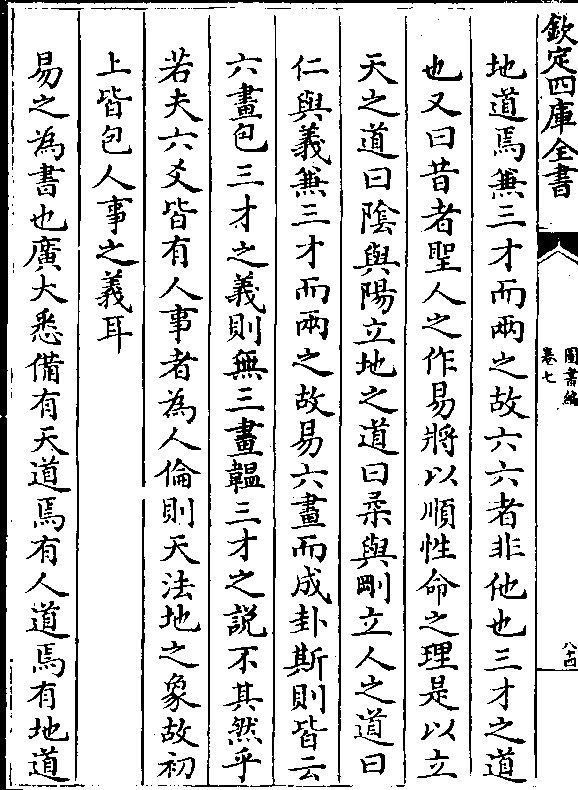 欽定四庫全書
圖書編
卷七
八十四
地道焉兼三才而兩之故六六者非他也三才之道
也又曰昔者聖人之作易將以順性命之理是以立
天之道曰陰與陽立地之道曰柔與剛立人之道曰
仁與義兼三才而兩之故易六畫而成卦斯則皆云
六畫包三才之義則無三畫韞三才之說不其然乎
若夫六爻皆有人事者為人倫則天法地之象故初
上皆包人事之義耳
易之為書也廣大悉備有天道焉有人道焉有地道